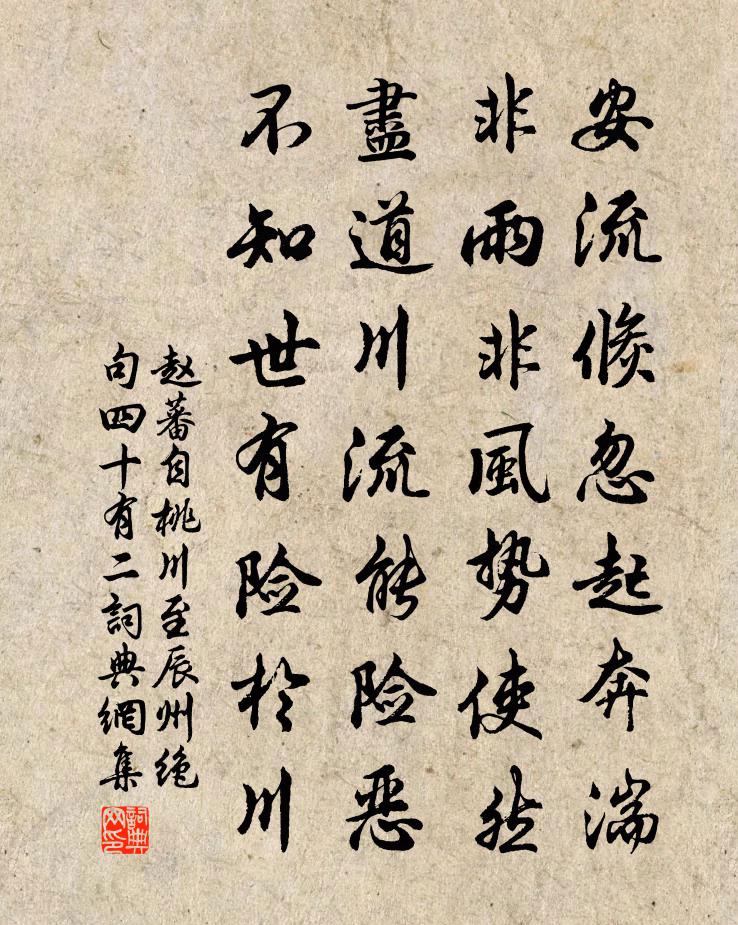 安流倏忽起奔湍
非雨非風勢使然
盡道川流能险恶
不知世有险於川
赵蕃自桃川至辰州绝
句四十有二詞典網集
詞典网印